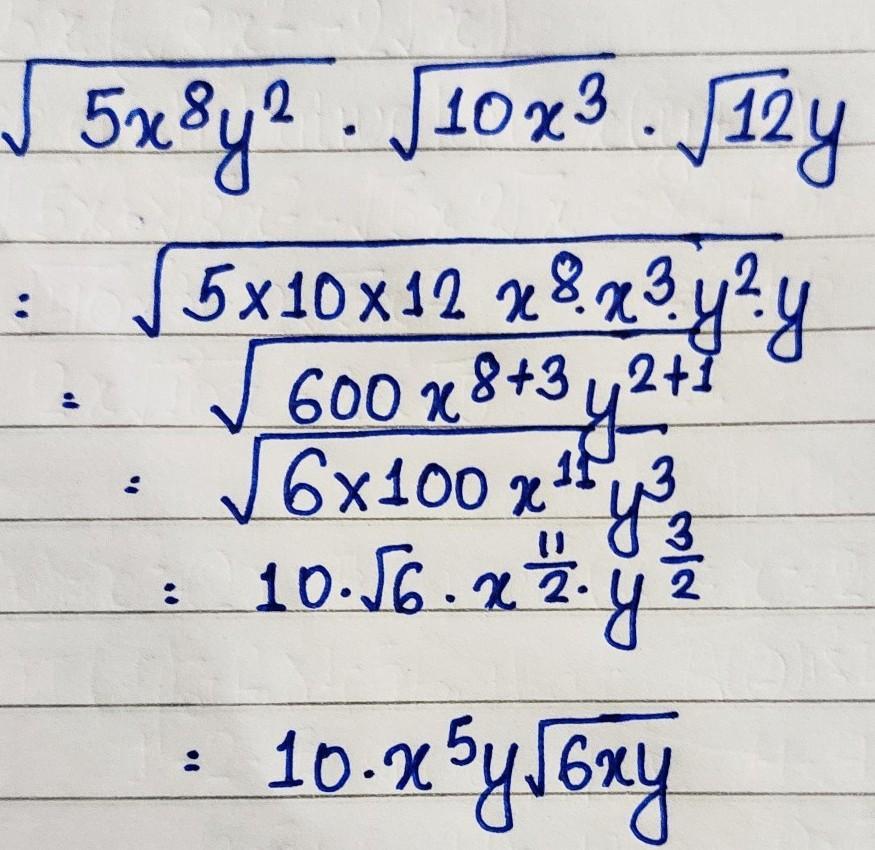 √(5x⁸y²) · √(10x³) · √12y
= √(5×10×12 x⁸·x³·y²·y)
= √(600 x⁸⁺³ y²⁺¹)
= √(6×100 x¹¹ y³)
= 10·√6 · x^(11/2) · y^(3/2)
= 10·x⁵y√(6xy)